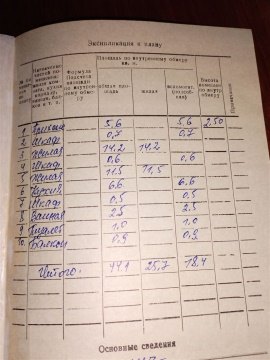 Экспликация к плану
Площадь по внутреннему обмеру кв. м.
Назначение частей помещения:
Формула подсчета площади по внутреннему обмеру
общая площадь
жилая
вспомогат.
Высота помещений по внутр. обмеру
Примечание
1 Прихож 5,6 5,6 2,50
2 Шкаф 0,7 0,7
3 Жилая 14,2 14,2
4 Шкаф 0,6 0,6
5 Жилая 11,5 11,5
6 Кухня 6,6 6,6
7 Шкаф 0,5 0,5
8 Ванная 2,5 2,5
9 Туалет 1,0 1,0
10. Балкон 0,9 0,9
Итого: 44,1 25,7 18,4
Основные сведения